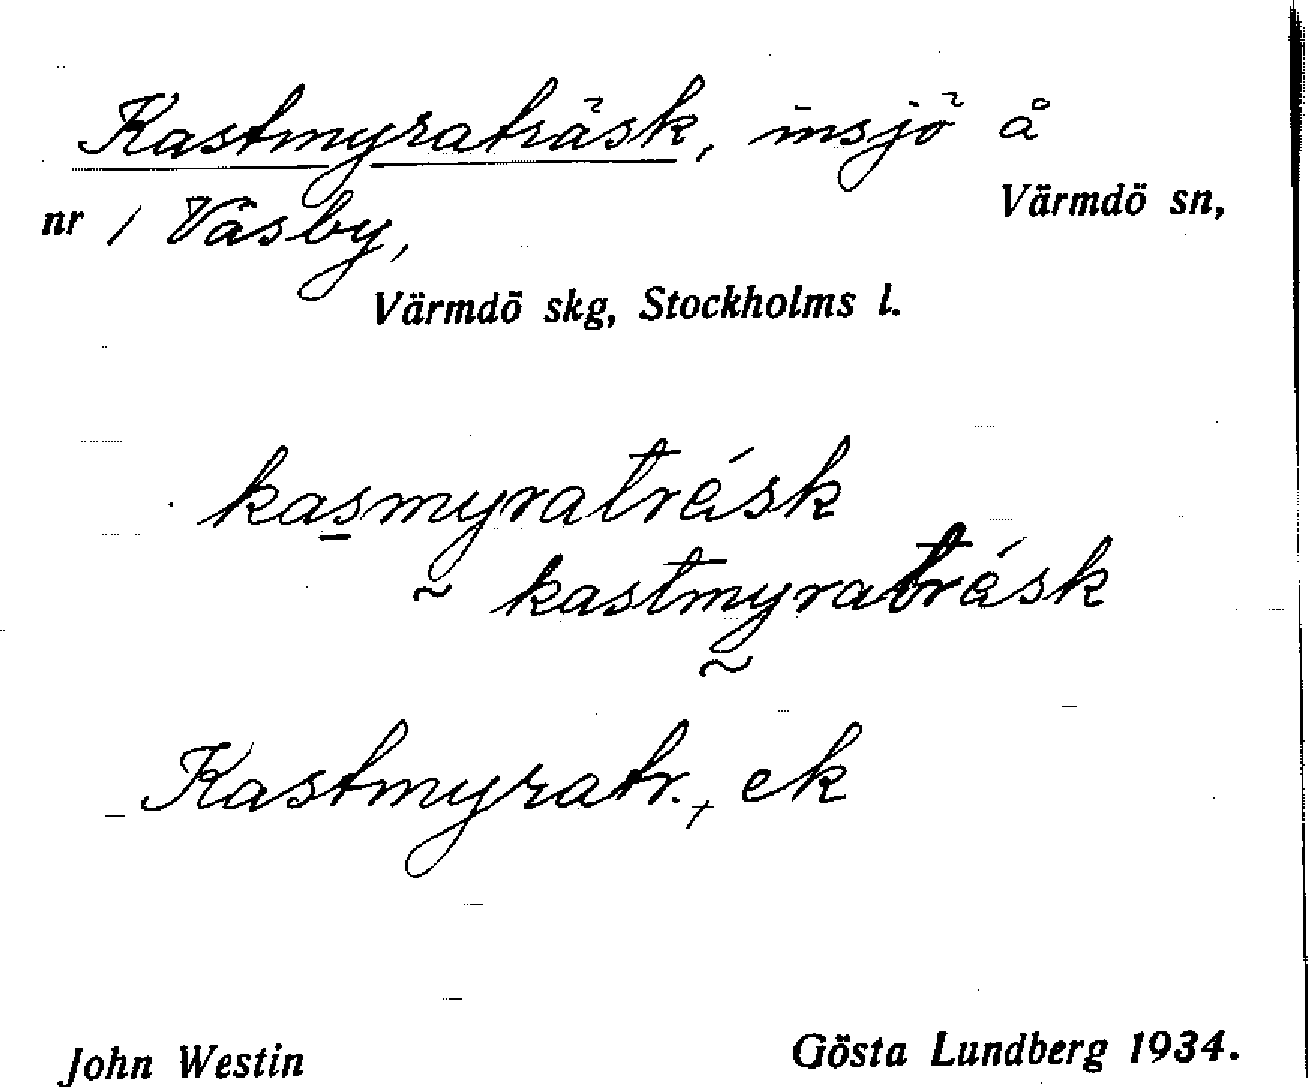 Kastmyraträsk, insjö å
nr 1 Väsby, Värmdö sn,
Värmdö skg, Stockholms l.
kasmyratrásk
~ kastmyratrásk
~
Kastmyratr., ek
John Westin Gösta Lundberg 1934.